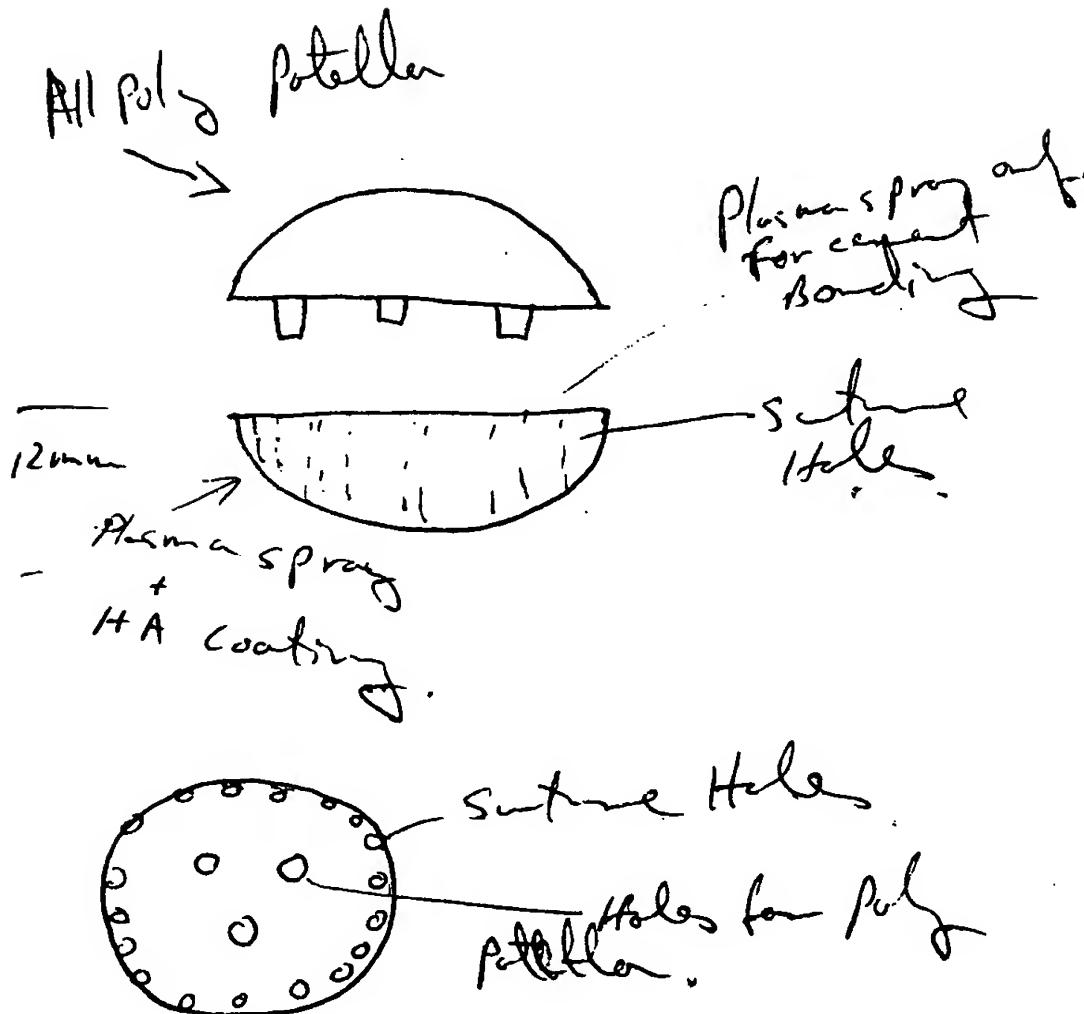 All Poly Patella
Plasma spray only
for cement
Bonding
Suture
Holes.
12mm
Plasma spray
+
HA coating.
Suture Holes
Holes for Poly
Patella.